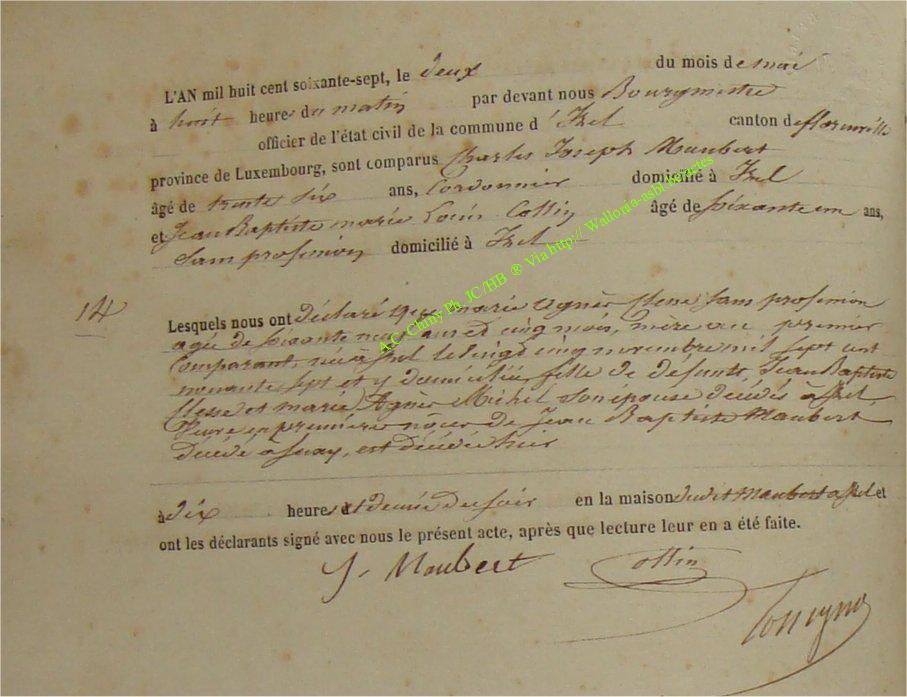 L'AN mil huit cent soixante-sept, le deux du mois de mai
à huit heures du matin par devant nous Bourgmestre
officier de l'état civil de la commune d'Izel canton de florenville
province de Luxembourg, sont comparus Charles Joseph Maubert
âgé de trente six ans, Cordonnier domicilié à Izel
et Jean Baptiste marie Louis Collin âgé de soixante un ans,
Sans profession domicilié à Izel
A.C. Chiny Ph. JC/HB ® Via http://Wallonia-asbl.be/actes
14
Lesquels nous ont déclaré que marie Agnès Clesse Sans profession
agée de soixante neuf ans et cinq mois, mère au premier
Comparant, née à Izel le vingt cinq novembre mil sept cent
nonante sept et y domiciliée, fille de défunts Jean Baptiste
Clesse et marie Agnès Michel son épouse décédés à Izel
Veuve en premières nôces de Jean Baptiste Maubert
décédé a, est décédée hier
à dix heures et demie du soir en la maison dudit Maubert a Izel et
ont les déclarants signé avec nous le présent acte, après que lecture leur en a été faite.
J. Maubert Collin